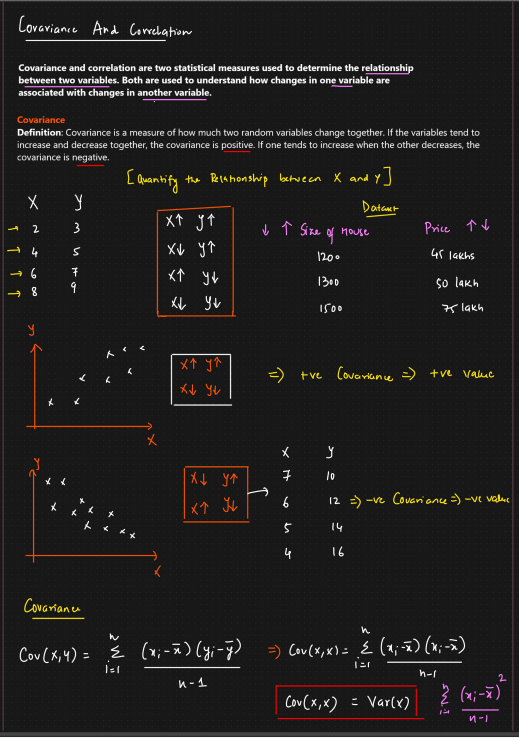 Covariance And Correlation
Covariance and correlation are two statistical measures used to determine the relationship
between two variables. Both are used to understand how changes in one variable are
associated with changes in another variable.
Covariance
Definition: Covariance is a measure of how much two random variables change together. If the variables tend to
increase and decrease together, the covariance is positive. If one tends to increase when the other decreases, the
covariance is negative.
[Quantify the Relationship between X and Y]
X Y
→ 2 3
→ 4 5
→ 6 7
→ 8 9
X↑ Y↑
X↓ Y↑
X↑ Y↓
X↓ Y↓
Dataset
↓ ↑ Size of House Price ↑ ↓
1200 45 lakhs
1300 50 lakh
1500 75 lakh
Y
X
X↑ Y↑
X↓ Y↓
⇒ +ve Covariance ⇒ +ve value
Y
X
X↓ Y↑
X↑ Y↓
X Y
7 10
6 12
5 14
4 16
⇒ -ve Covariance ⇒ -ve value
Covariance
Cov(x,y) = n Σ i=1 (xi-x̄)(yi-ȳ) / n-1
⇒ Cov(x,x) = n Σ i=1 (xi-x̄)(xi-x̄) / n-1
Cov(x,x) = Var(x)
n Σ i=1 (xi-x̄)² / n-1